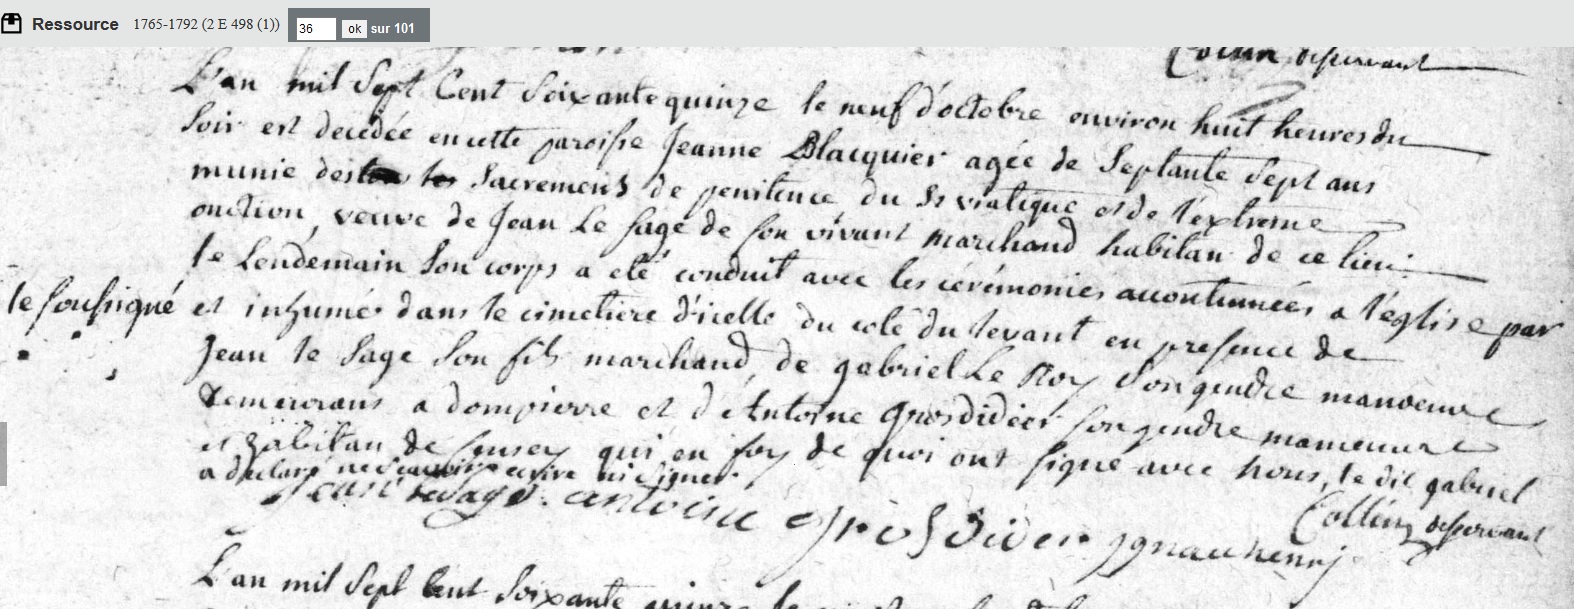 Ressource 1765-1792 (2 E 498 (1)) 36 ok sur 101
Collin desservant
L'an mil Sept Cent Soixante quinze le neuf d'octobre environ huit heures du
Soir est decedée en cette paroisse Jeanne Blacquier agée de Septante Sept ans
munie des Sacremens de penitence du St viatique et de l'extreme
onction, veuve de Jean Le Sage de son vivant marchand habitan de ce lieu.
le Lendemain Son corps a eté conduit avec les cérémonies accoutumées a l'église par
le soussigné et inhumé dans le cimetiere d'icelle du coté du levant en presence de
Jean le Sage Son fils marchand, de gabriel Le Roy Son gendre manoeuvre
demeurans a dompierre et d'Antoine grosdidier son gendre manoeuvre
et habitan de qui en foy de quoi ont signé avec nous, le dit gabriel
a declaré ne scavoire ecrire ni signer.
Jean lesage. antoine grosdidier ignace henry
Collin desservant
L'an mil Sept Cent Soixante quinze le